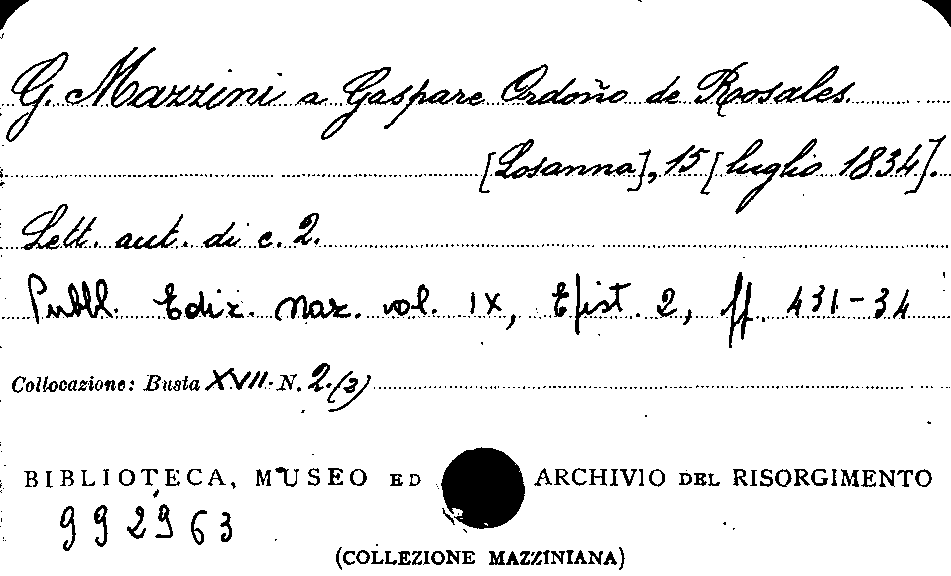 G. Mazzini a Gaspare Ordoño de Rosales.
[Losanna], 15 [luglio 1834].
Lett. aut. di c. 2.
Pubbl. Ediz. Naz. vol. IX, Epist. 2, pp. 431-34
Collocazione: Busta XVII. N. 2.(3)
BIBLIOTECA, MUSEO ED ARCHIVIO DEL RISORGIMENTO
992963
(COLLEZIONE MAZZINIANA)